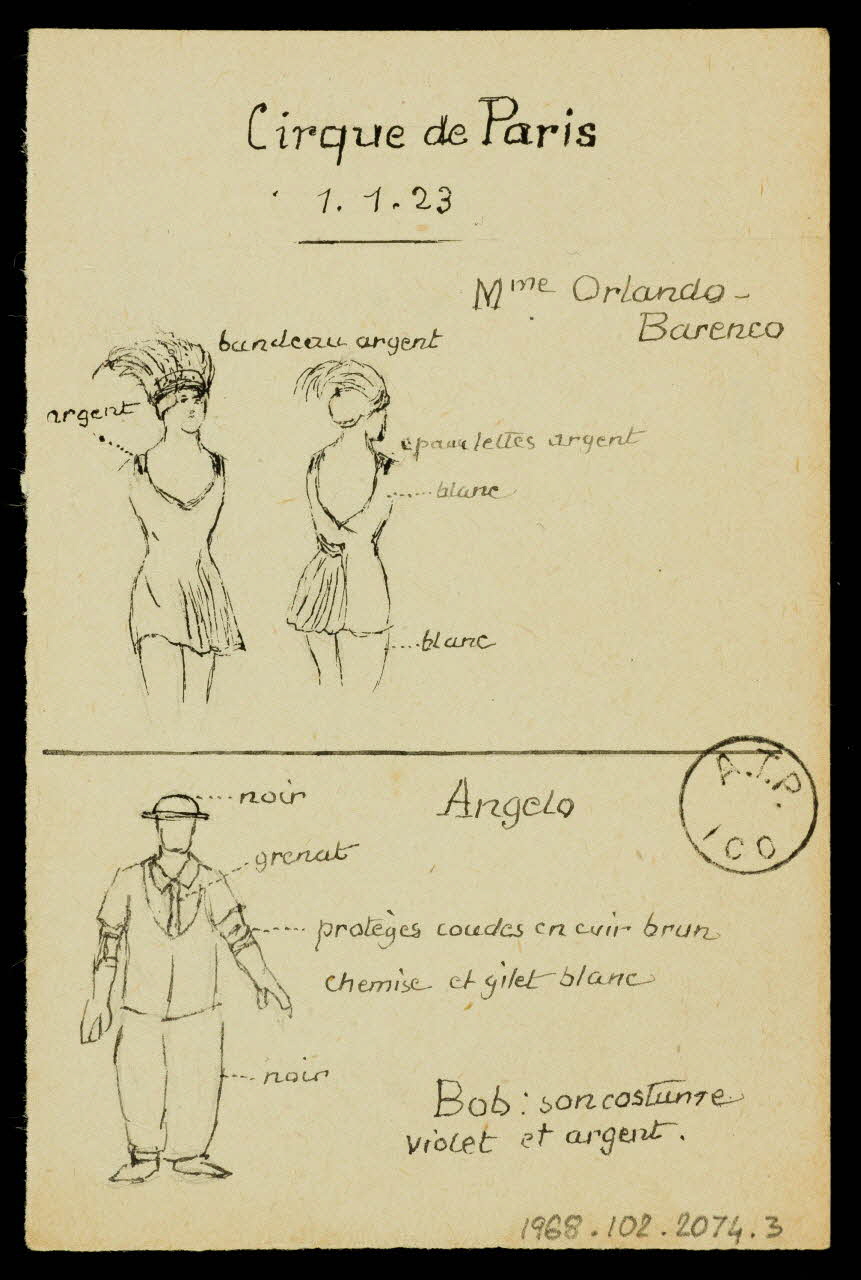 Cirque de Paris
1. 1. 23
Mme Orlando-
Barenco
bandeau argent
argent
épaulettes argent
blanc
blanc
A.T.P.
ICO
noir
Angelo
grenat
protèges coudes en cuir brun
chemise et gilet blanc
noir
Bob : son costume
violet et argent.
1968.102.2074.3